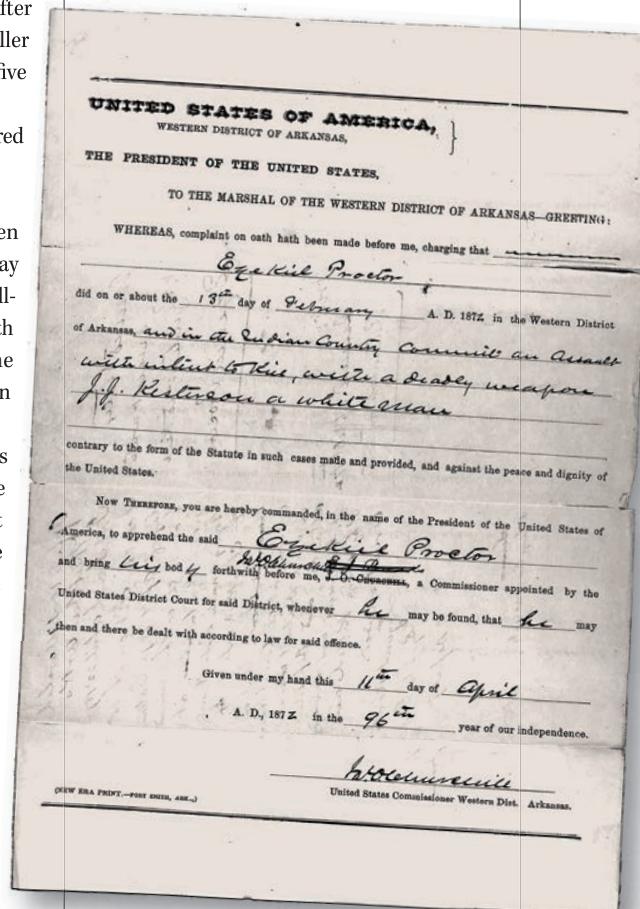 fter
ller
five
red
en
ay
ll-
th
ne
n
s
e
t
e
UNITED STATES OF AMERICA,
WESTERN DISTRICT OF ARKANSAS,
THE PRESIDENT OF THE UNITED STATES,
TO THE MARSHAL OF THE WESTERN DISTRICT OF ARKANSAS—GREETING:
WHEREAS, complaint on oath hath been made before me, charging that
Ezekiel Proctor
did on or about the 13th day of February A. D. 1872 in the Western District
of Arkansas, and in the Indian Country commit an Assault
with intent to Kill, with a deadly weapon
J.J. Kesterson a white man
contrary to the form of the Statute in such cases made and provided, and against the peace and dignity of
the United States.
NOW THEREFORE, you are hereby commanded, in the name of the President of the United States of
America, to apprehend the said Ezekiel Proctor
and bring his body forthwith before me, J. O. CHURCHILL, a Commissioner appointed by the
United States District Court for said District, whenever he may be found, that he may
then and there be dealt with according to law for said offence.
Given under my hand this 11th day of April
A. D., 1872 in the 96th year of our independence.
United States Commissioner Western Dist. Arkansas.
(NEW ERA PRINT.—FORT SMITH, ARK.,)